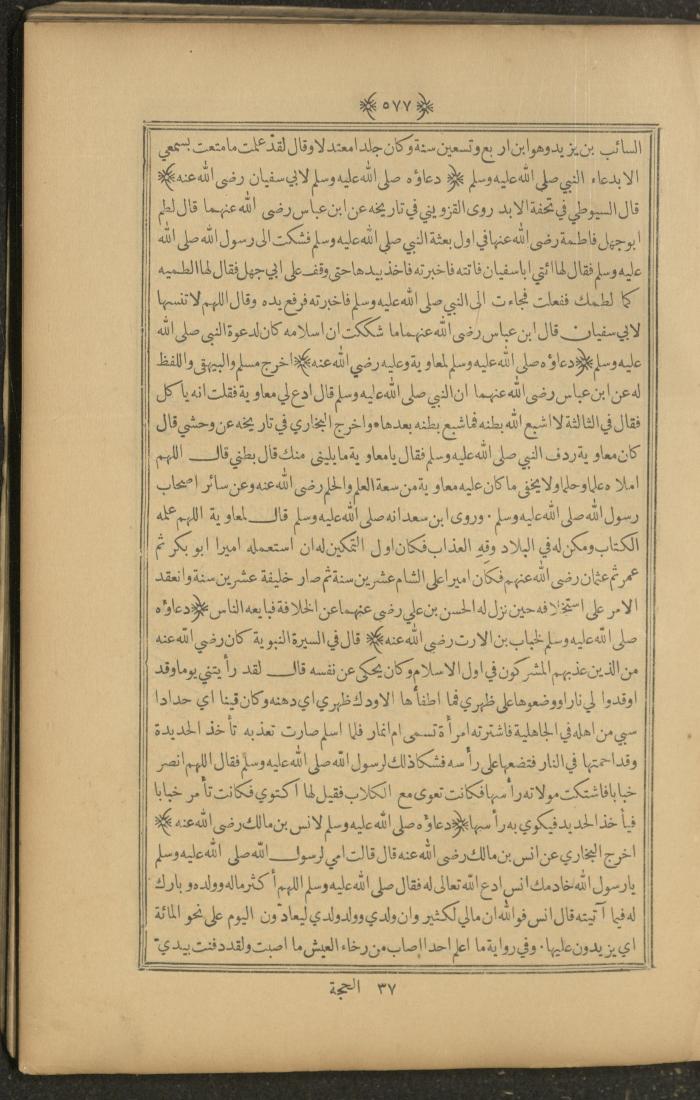 ﴿ ٥٧٧ ﴾
السائب بن يزيد وهو ابن اربع وتسعين سنة وكان جلدا معتدلا وقال لقد علمت ما متعت بسمعي
الا بدعاء النبي صلى الله عليه وسلم ﴿ دعاؤه صلى الله عليه وسلم لابي سفيان رضى الله عنه ﴾
قال السيوطي في تحفة الابد روى القزويني في تاريخه عن ابن عباس رضى الله عنهما قال لطم
ابو جهل فاطمة رضى الله عنها في اول بعثة النبي صلى الله عليه وسلم فشكت الى رسول الله صلى الله
عليه وسلم فقال لها ائتي ابا سفيان فاتته فاخبرته فاخذ بيدها حتى وقف على ابي جهل فقال لها الطميه
كما لطمك ففعلت فجاءت الى النبي صلى الله عليه وسلم فاخبرته فرفع يده وقال اللهم لا تنسها
لابي سفيان قال ابن عباس رضى الله عنهما ما شككت ان اسلامه كان لدعوة النبي صلى الله
عليه وسلم ﴿ دعاؤه صلى الله عليه وسلم لمعاوية وعليه رضي الله عنه ﴾ اخرج مسلم والبيهقي واللفظ
له عن ابن عباس رضى الله عنهما ان النبي صلى الله عليه وسلم قال ادع لي معاوية فقلت انه ياكل
فقال في الثالثة لا اشبع الله بطنه فما شبع بطنه بعدها * واخرج البخاري في تاريخه عن وحشي قال
كان معاوية ردف النبي صلى الله عليه وسلم فقال يا معاوية ما يليني منك قال بطني قال اللهم
املاه علما وحلما ولا يخفى ما كان عليه معاوية من سعة العلم والحلم رضى الله عنه وعن سائر اصحاب
رسول الله صلى الله عليه وسلم . وروى ابن سعد انه صلى الله عليه وسلم قال لمعاوية اللهم علمه
الكتاب ومكن له في البلاد وقه العذاب فكان اول التمكين له ان استعمله اميرا ابو بكر ثم
عمر ثم عثمان رضى الله عنهم فكان اميرا على الشام عشرين سنة ثم صار خليفة عشرين سنة وانعقد
الامر على استخلافه حين نزل له الحسن بن علي رضى عنهما عن الخلافة فبايعه الناس ﴿ دعاؤه
صلى الله عليه وسلم لخباب بن الارت رضى الله عنه ﴾ قال في السيرة النبوية كان رضى الله عنه
من الذين عذبهم المشركون في اول الاسلام وكان يحكى عن نفسه قال لقد رأيتني يوما وقد
اوقدوا لي نارا ووضعوها على ظهري فما اطفأها الا ودك ظهري اي دهنه وكان قينا اي حدادا
سبي من اهله في الجاهلية فاشترته امرأة تسمى ام انمار فلما اسلم صارت تعذبه تأخذ الحديدة
وقد احمتها في النار فتضعها على رأسه فشكا ذلك لرسول الله صلى الله عليه وسلم فقال اللهم انصر
خبابا فاشتكت مولاته رأسها فكانت تعوى مع الكلاب فقيل لها اكتوي فكانت تأمر خبابا
فيأخذ الحديد فيكوي به رأسها ﴿ دعاؤه صلى الله عليه وسلم لانس بن مالك رضى الله عنه ﴾
اخرج البخاري عن انس بن مالك رضى الله عنه قال قالت امي لرسول الله صلى الله عليه وسلم
يا رسول الله خادمك انس ادع الله تعالى له فقال صلى الله عليه وسلم اللهم أكثر ماله وولده وبارك
له فيما آتيته قال انس فوالله ان مالي لكثير وان ولدي وولد ولدي ليعادون اليوم على نحو المائة
اي يزيدون عليها . وفي رواية ما اعلم احدا اصاب من رخاء العيش ما اصبت ولقد دفنت بيدي
٣٧ الحجة